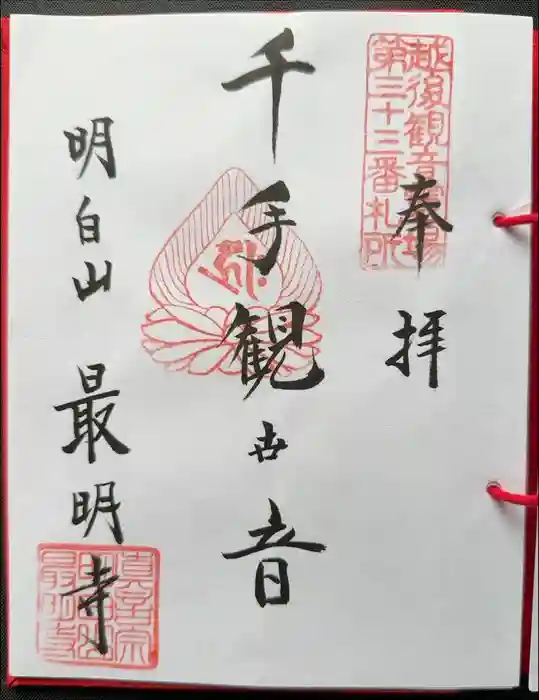 越後観音霊場
第三十三番札所
奉拝
千手観世音
明白山 最明寺
真言宗
明白山
最明寺